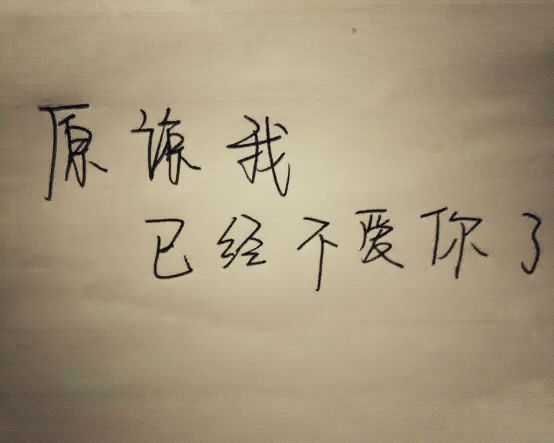 原谅我
已经不爱你了